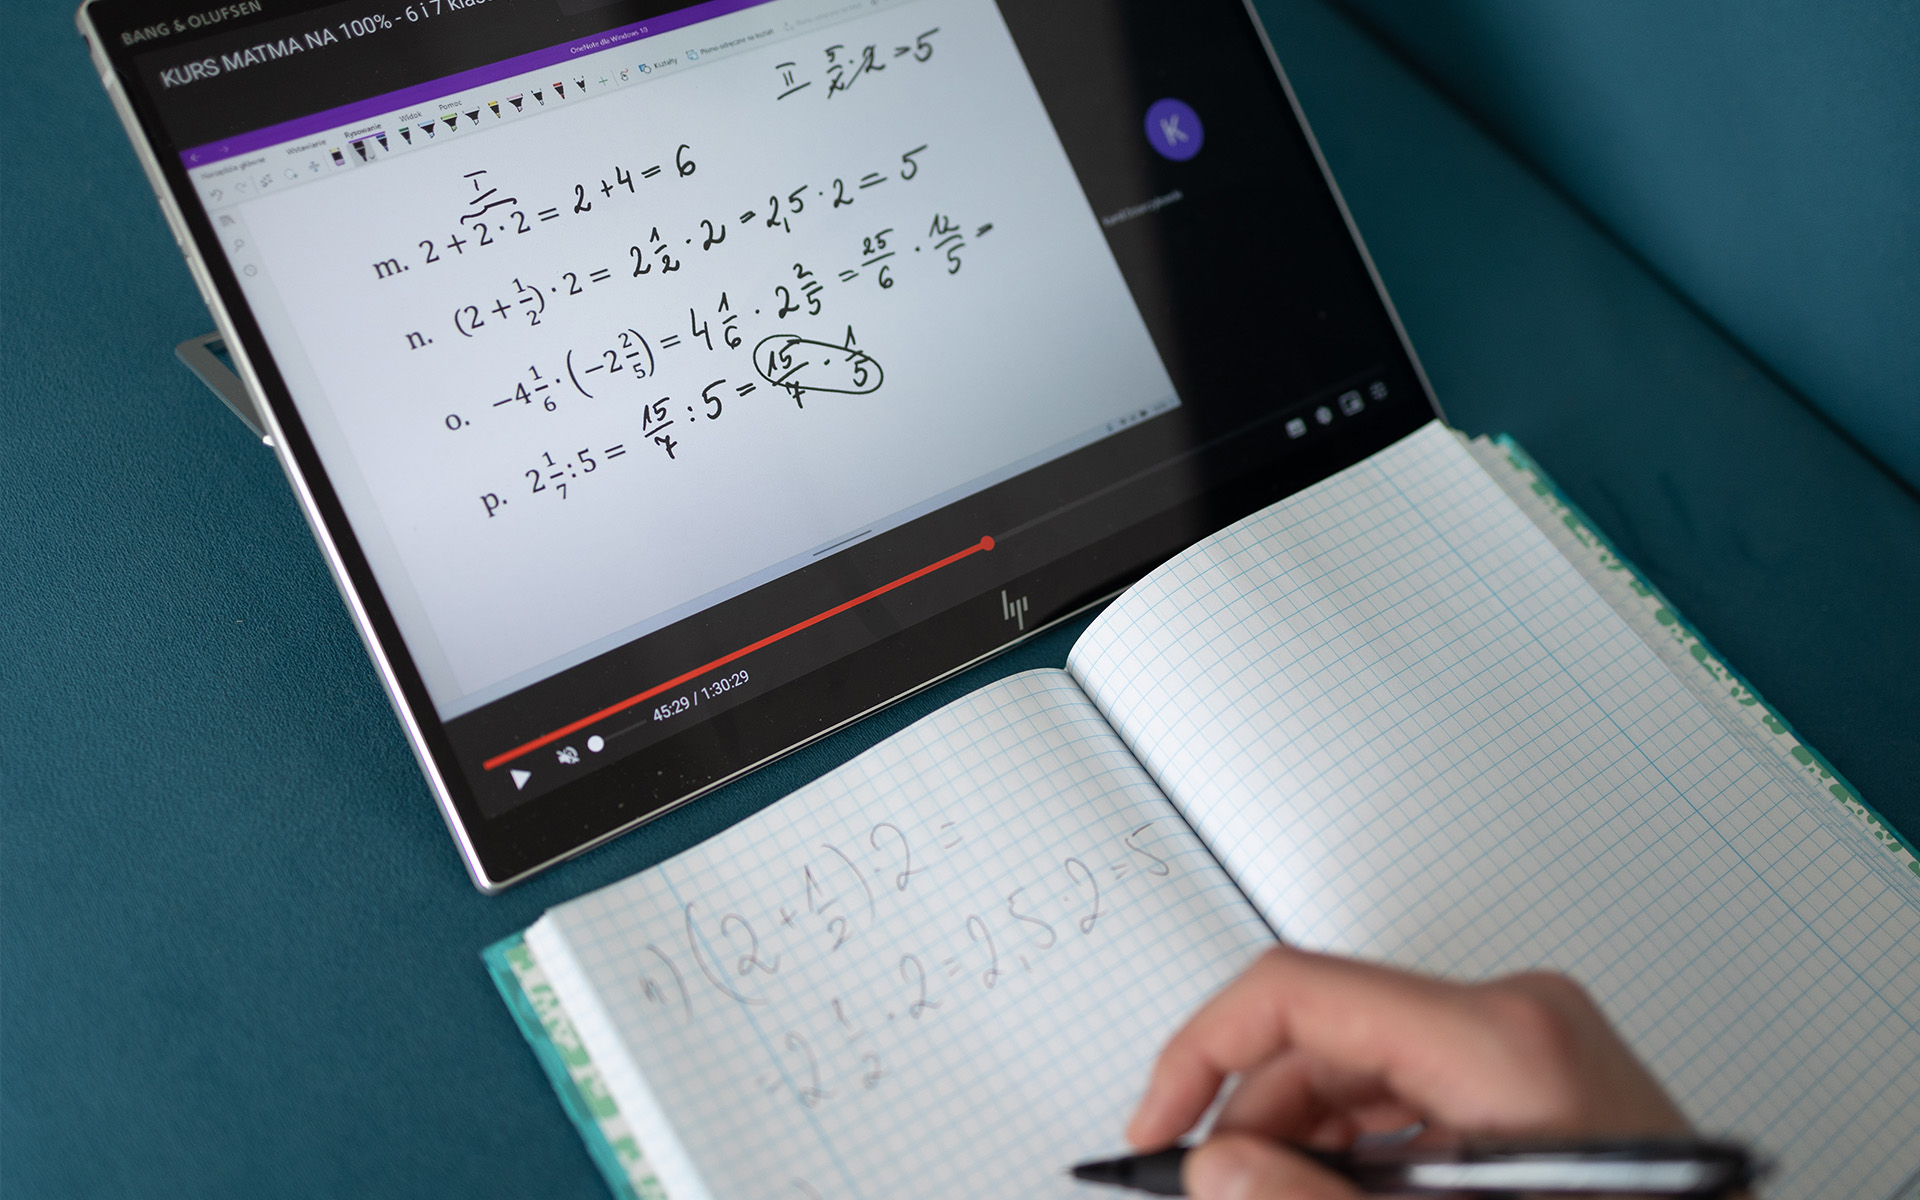 BANG & OLUFSEN
KURS MATMA NA 100% - 6 i 7
OneNote dla Windows 10
Narzędzia główne Wstawianie Rysowanie Widok Pomoc
Kształty
II 5/2 · 2 = 5
I
m. 2 + 2 · 2 = 2 + 4 = 6
n. (2 + 1/2) · 2 = 2 1/2 · 2 = 2,5 · 2 = 5
o. −4 1/6 · (−2 2/5) = 4 1/6 · 2 2/5 = 25/6 · 12/5 =
p. 2 1/7 : 5 = 15/7 : 5 = 15/7 · 1/5
K
45:29 / 1:30:29
hp
n) (2 + 1/2) · 2 =
= 2 1/2 · 2 = 2,5 · 2 = 5